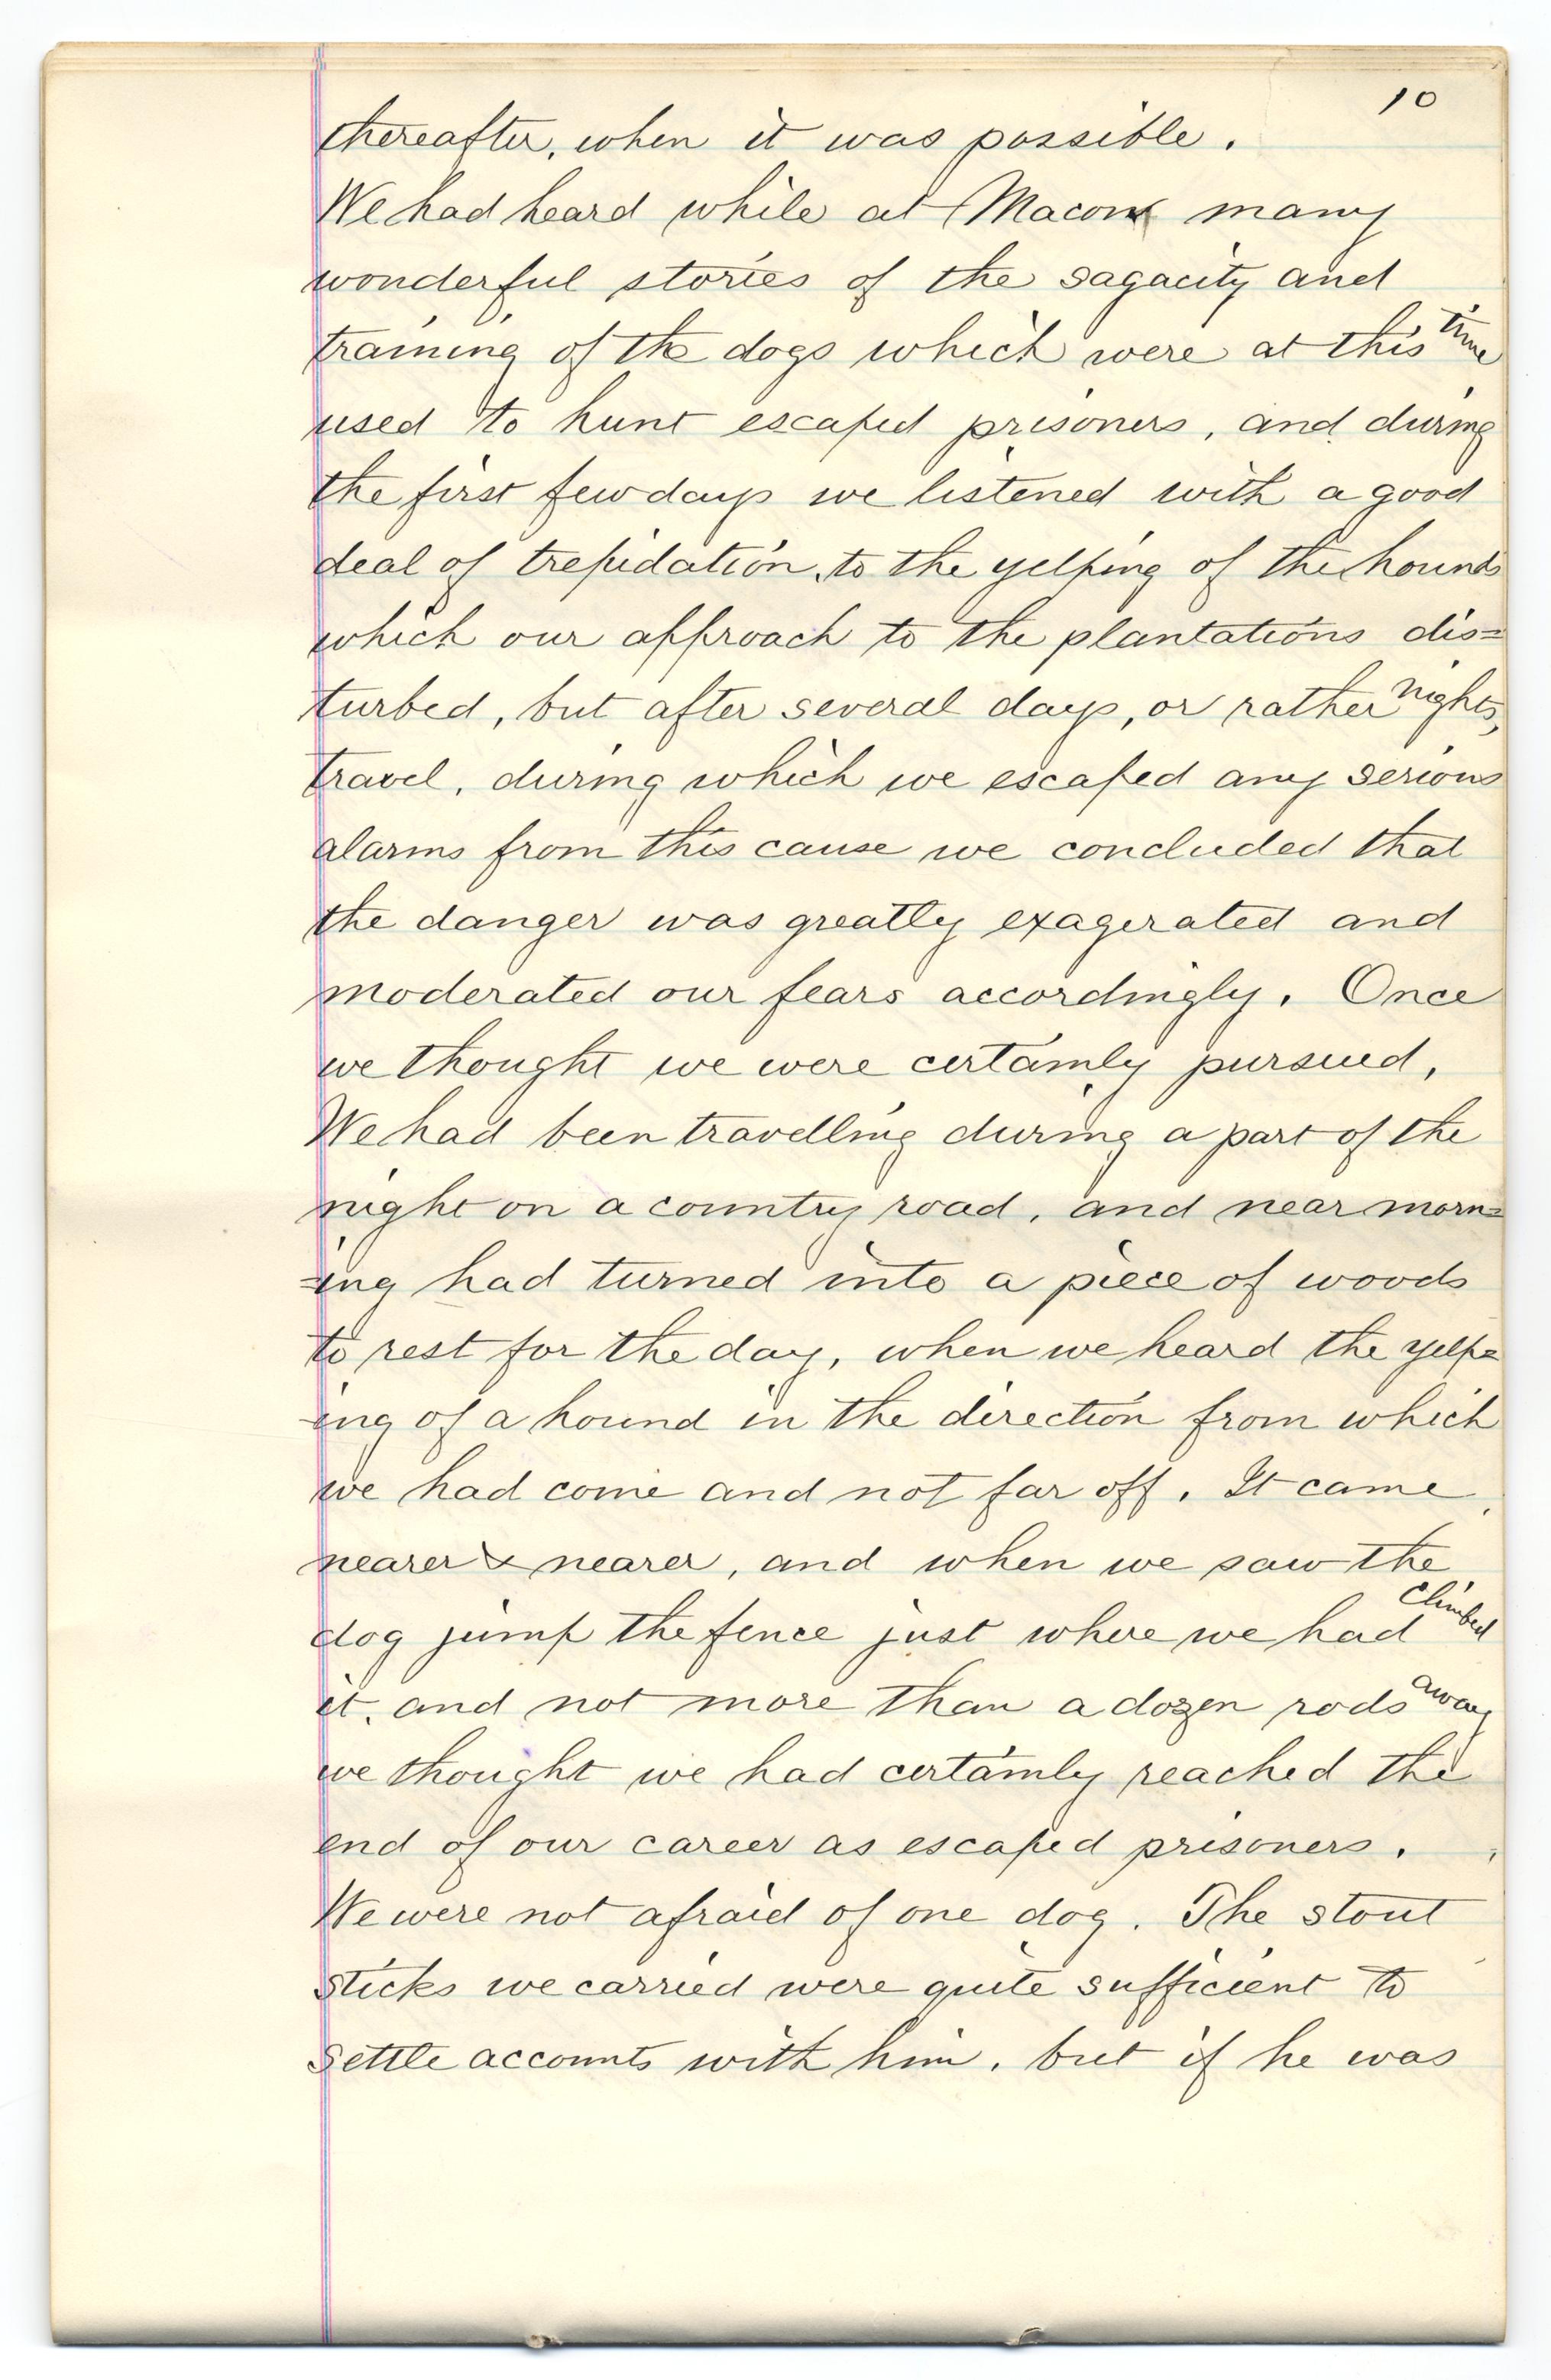 10
thereafter, when it was possible.
We had heard while at Macon many
wonderful stories of the sagacity and
training of the dogs which were at this time
used to hunt escaped prisoners, and during
the first few days we listened with a good
deal of trepidation, to the yelping of the hounds
which our approach to the plantations dis=
turbed, but after several days, or rather nights,
travel, during which we escaped any serious
alarms from this cause we concluded that
the danger was greatly exagerated and
moderated our fears accordingly. Once
we thought we were certainly pursued,
We had been travelling during a part of the
night on a country road, and near morn=
=ing had turned into a piece of woods
to rest for the day, when we heard the yelp=
=ing of a hound in the direction from which
we had come and not far off. It came
nearer & nearer, and when we saw the
dog jump the fence just where we had climbed
it, and not more than a dozen rods away
we thought we had certainly reached the
end of our career as escaped prisoners.
We were not afraid of one dog. The stout
sticks we carried were quite sufficient to
settle accounts with him, but if he was